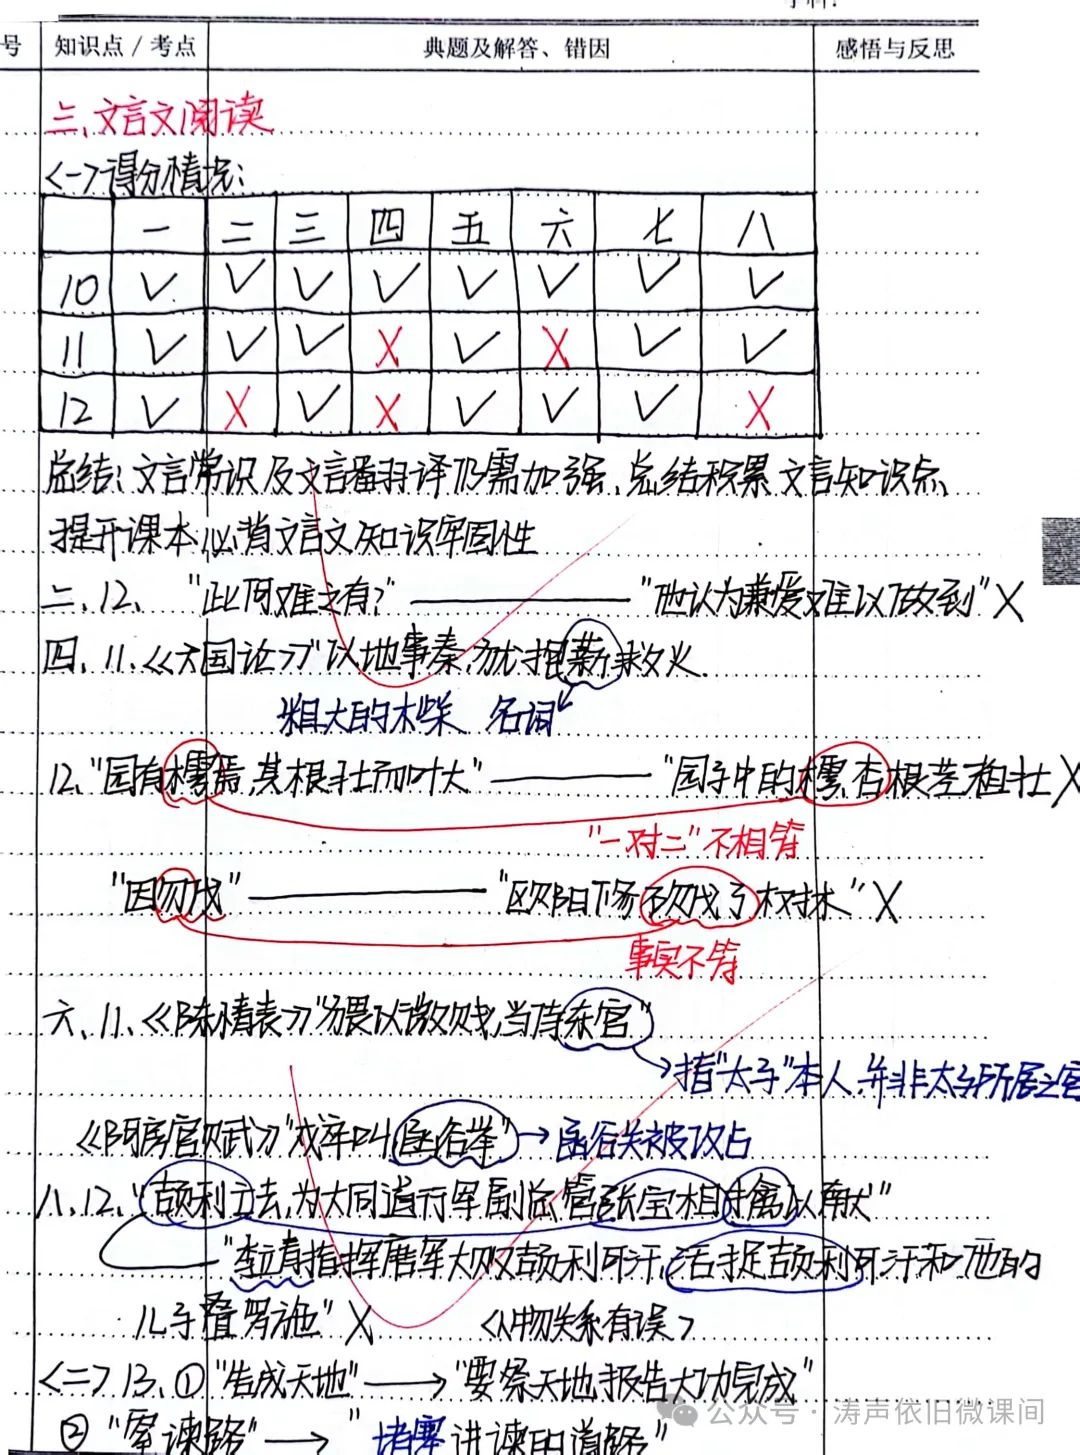 号 知识点 / 考点 典题及解答、错因 感悟与反思
三、文言文阅读
<一>得分情况:
一 二 三 四 五 六 七 八
10 ✓ ✓ ✓ ✓ ✓ ✓ ✓ ✓
11 ✓ ✓ ✓ X ✓ X ✓ ✓
12 ✓ X ✓ X ✓ ✓ ✓ X
总结:文言常识及文言翻译仍需加强,总结积累文言知识点、
提升课本必背文言文知识牢固性
二、12、 "此何难之有?" —— "他认为兼爱难以做到" X
四、11.《六国论》"以地事秦,犹抱薪救火.
粗大的木柴 名词
12."园有樗焉,其根壮而叶大" —— "园子中的樗,杏根茎粗壮 X
"一对二"不相符
"因勿伐" —— "欧阳修砍伐了樗树" X
事实不符
六、11、《陈情表》"猥以微贱,当侍东宫"
指"太子"本人,并非太子所居之宫
《阿房宫赋》"戍卒叫函谷举" → 函谷关被攻占
八、12."颉利立去,为大同道行军副总管张宝相擒以献"
"李靖指挥唐军大败颉利可汗,活捉颉利可汗和他的
儿子叠罗施" X <人物关系有误>
<二>13、① "告成天地" → "要祭天地,报告大功完成"
② "窒谏路" → "堵塞进谏的道路"
公众号 · 涛声依旧微课间